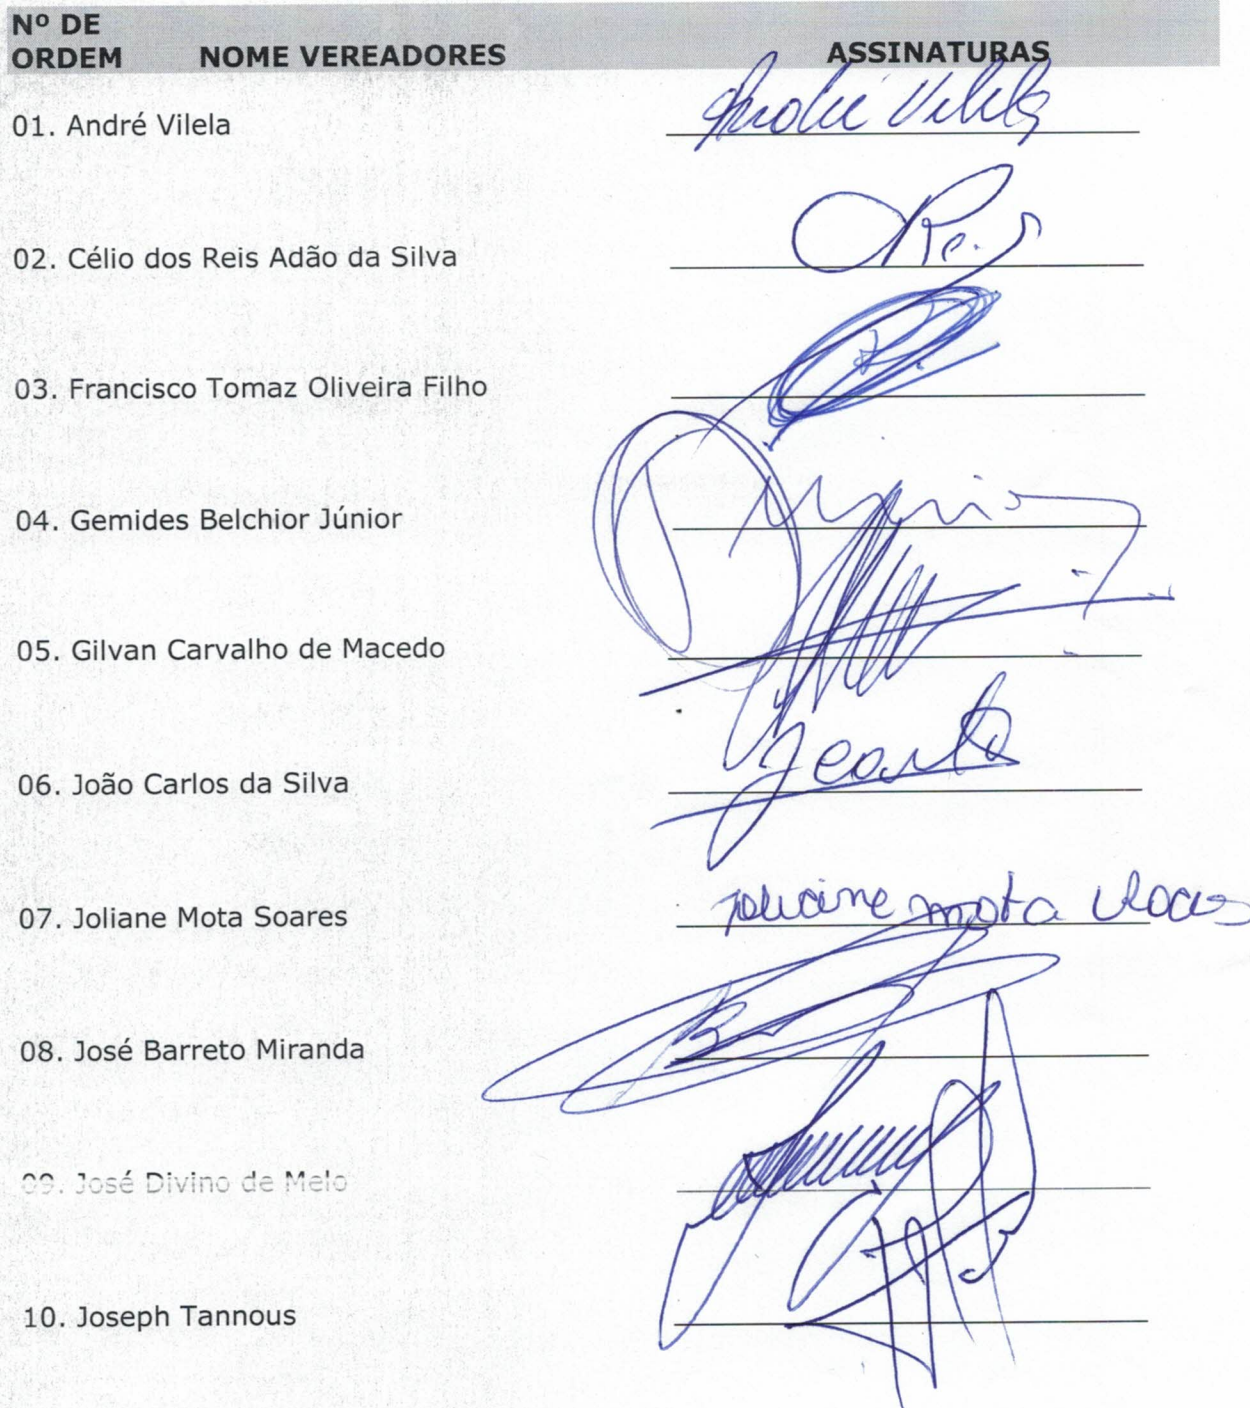 Nº DE
ORDEM NOME VEREADORES ASSINATURAS
01. André Vilela André Vilela
02. Célio dos Reis Adão da Silva Reis
03. Francisco Tomaz Oliveira Filho
04. Gemides Belchior Júnior Junior
05. Gilvan Carvalho de Macedo
06. João Carlos da Silva
07. Joliane Mota Soares Joliane mota
08. José Barreto Miranda
09. José Divino de Melo
10. Joseph Tannous